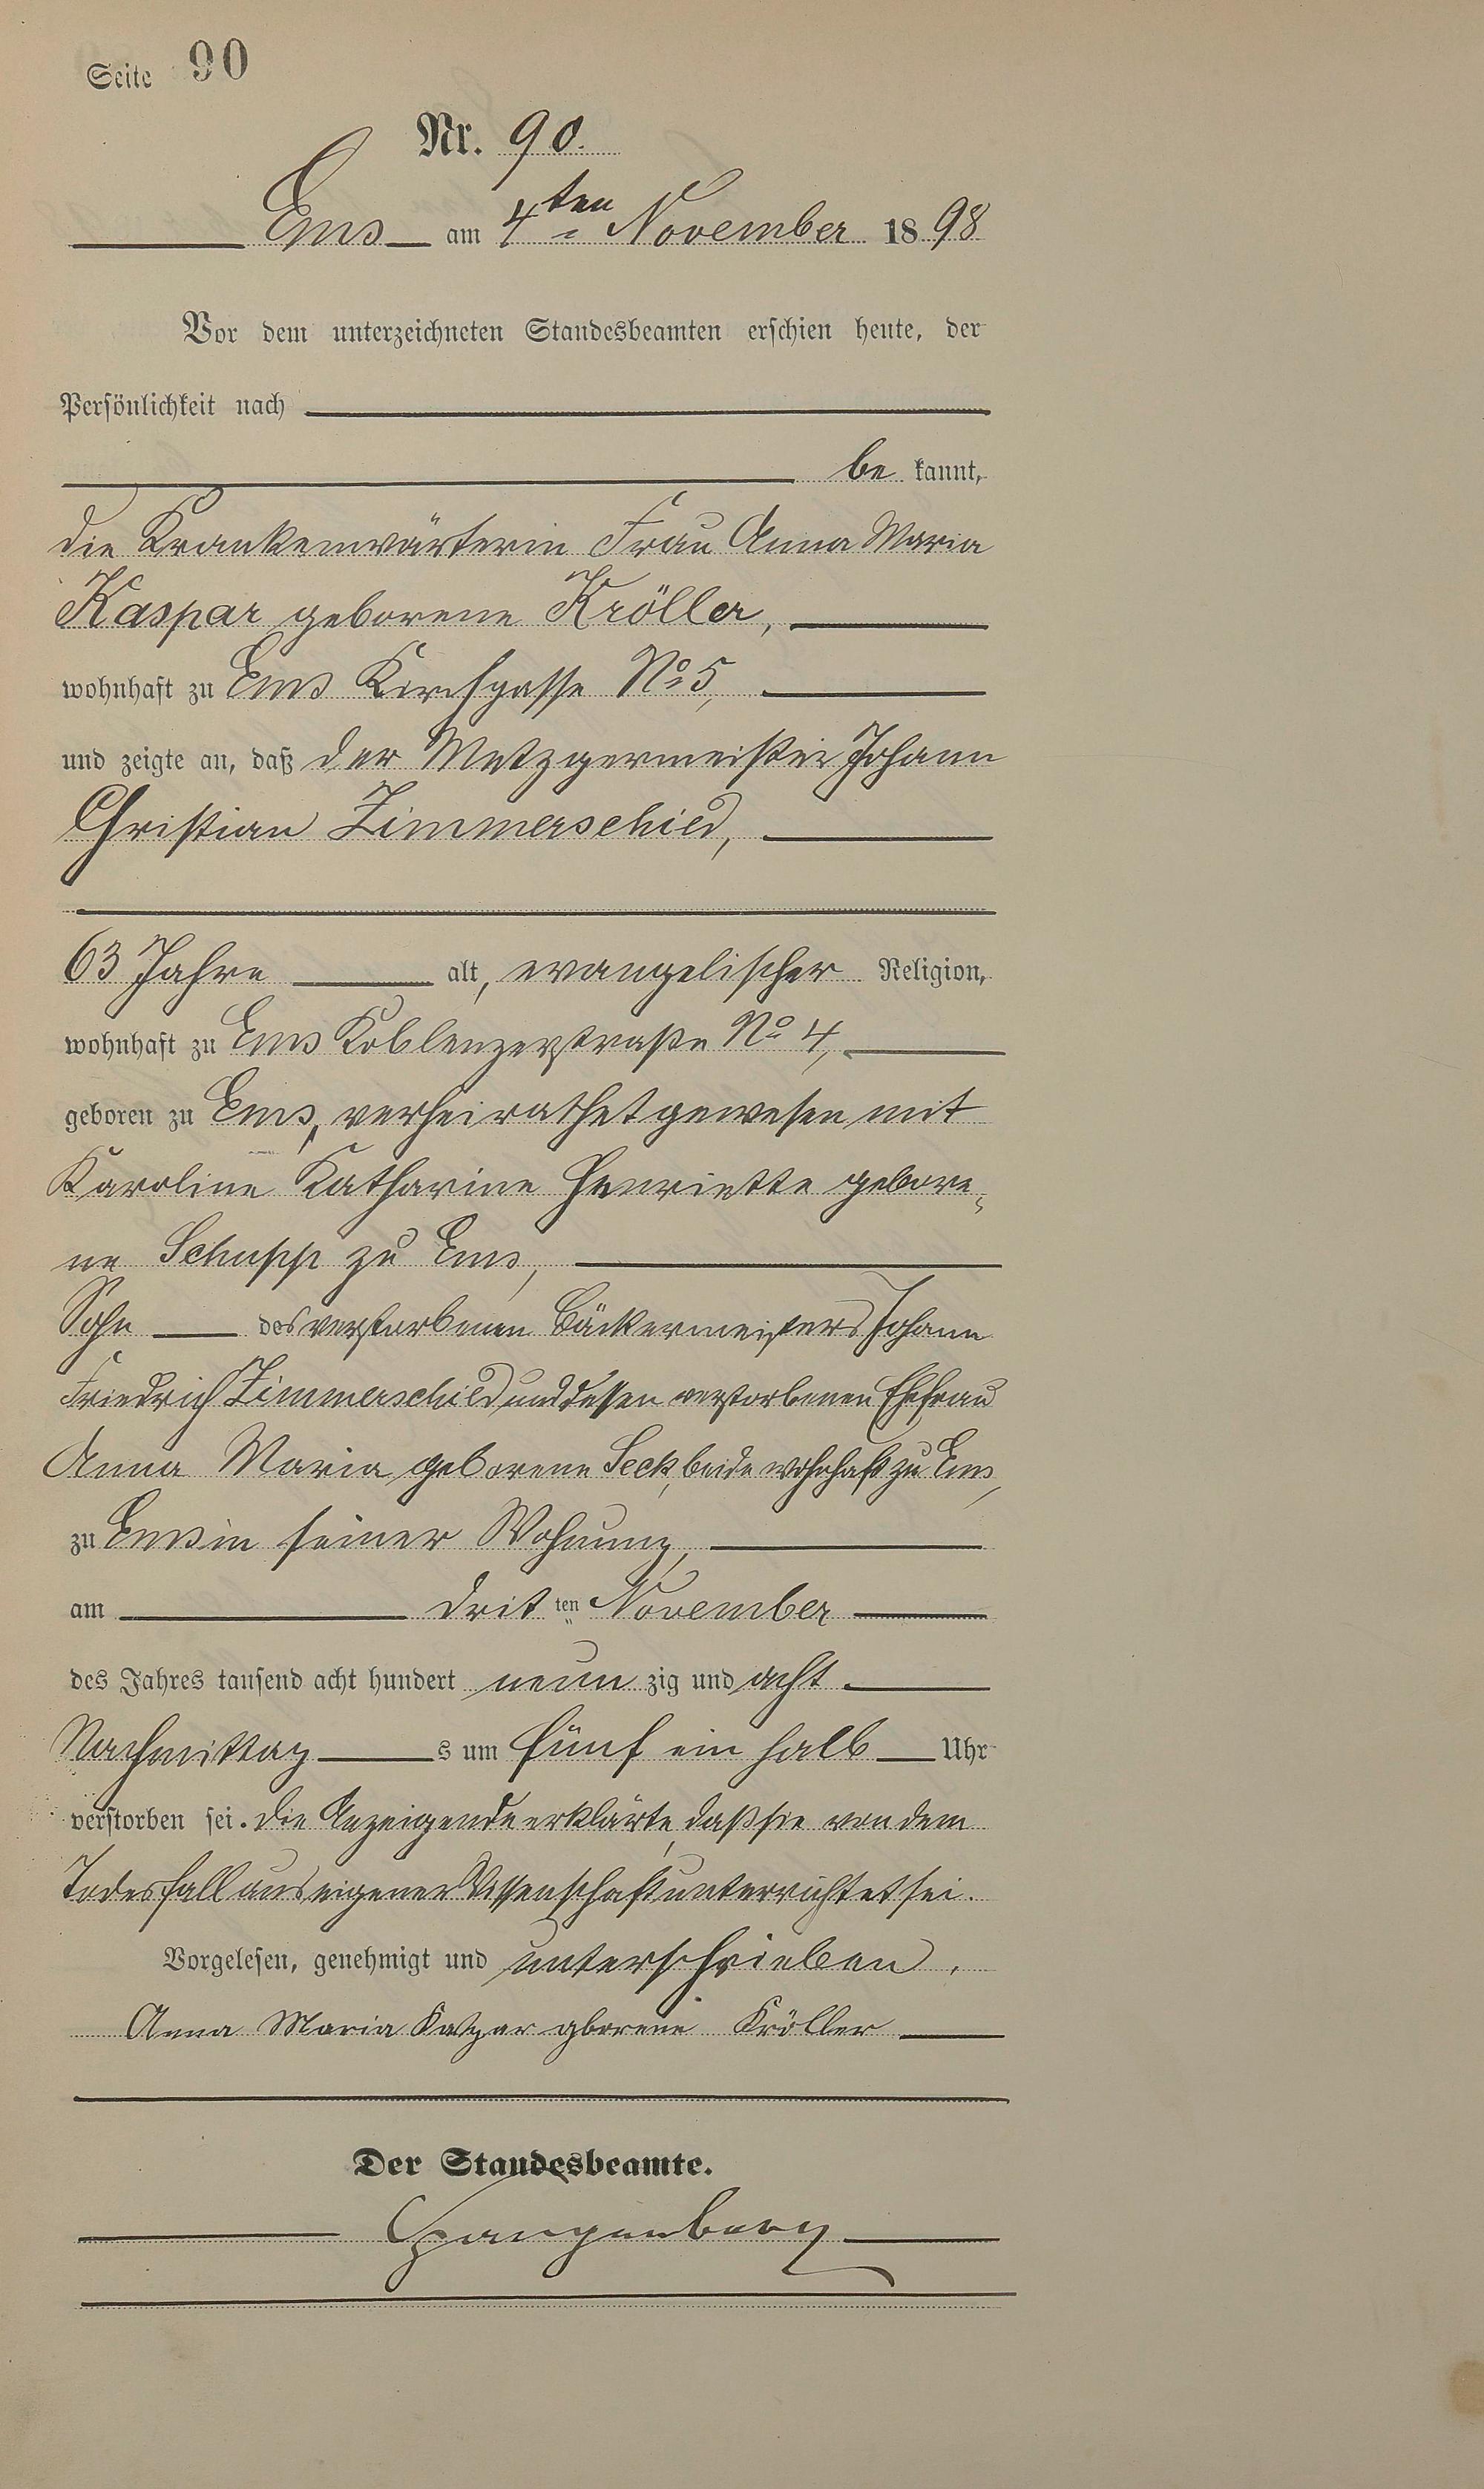 Seite 90
Nr. 90.
Ems am 4ten November 1898
Vor dem unterzeichneten Standesbeamten erschien heute, der
Persönlichkeit nach
be kannt,
die Krankenwärterin Frau Anna Maria
Kaspar geborene Kröller,
wohnhaft zu Ems Kirchgasse No 5,
und zeigte an, daß der Metzgermeister Johann
Christian Zimmerschied,
63 Jahre alt, evangelischer Religion,
wohnhaft zu Ems Koblenzerstraße No 4,
geboren zu Ems, verheirathet gewesen mit
Karoline Katharine Henriette gebore-
ne Schupp zu Ems,
Sohn des verstorbenen Bäckermeisters Johann
Friedrich Zimmerschied und dessen verstorbenen Ehefrau
Anna Maria geborene Seck, beide wohnhaft zu Ems,
zu Ems in seiner Wohnung,
am drit ten November
des Jahres tausend acht hundert neun zig und acht
Nachmittag s um fünf ein halb Uhr
verstorben sei. Die Anzeigende erklärte, daß sie von dem
Todesfall aus eigener Wissenschaft unterrichtet sei.
Vorgelesen, genehmigt und unterschrieben.
Anna Maria Kaspar gborene Kröller
Der Standesbeamte.
Spangenberg